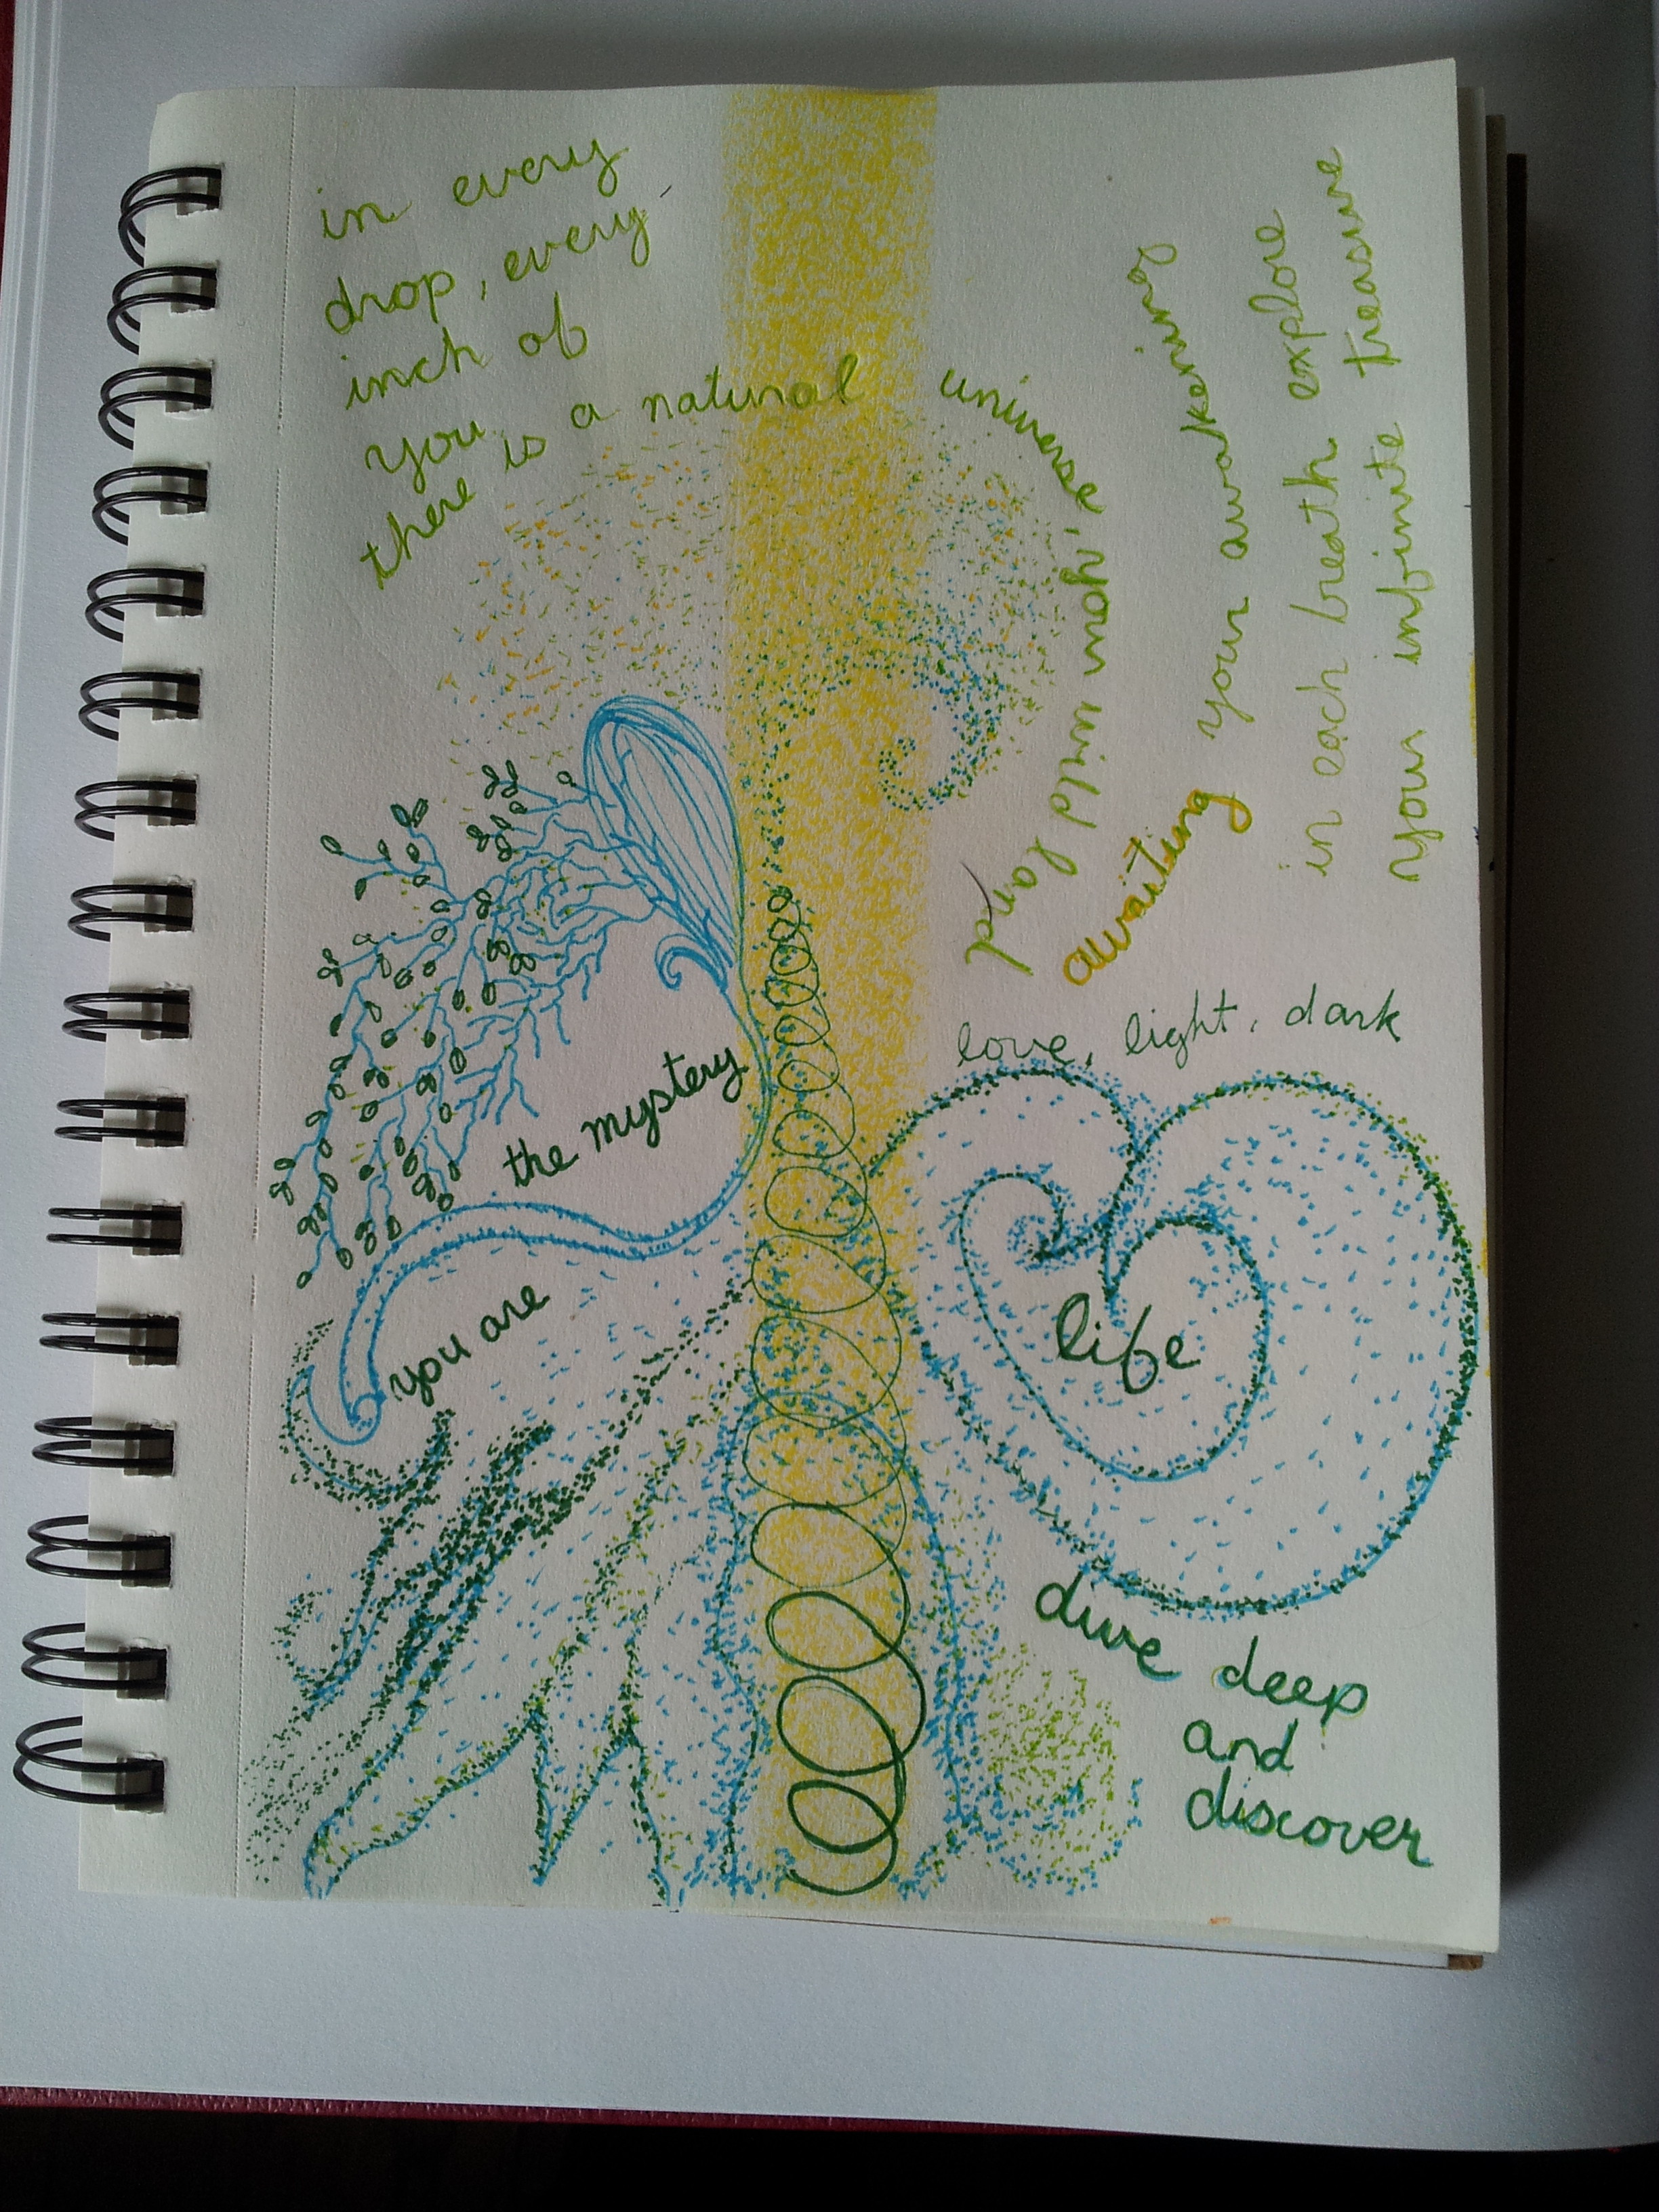 in every
drop, every
inch of
you
there is a natural universe, your wild land
awaiting your awakening
in each breath explore
your infinite treasure
love, light, dark
life
the mystery
you are
dive deep
and
discover